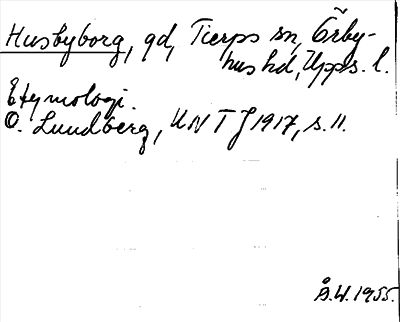 Husbyborg, gd, Tierps sn, Örby-
hus hd, Upps. l.
Etymologi.
O. Lundberg, UNT J 1917, s. 11.
Å.W. 1955.